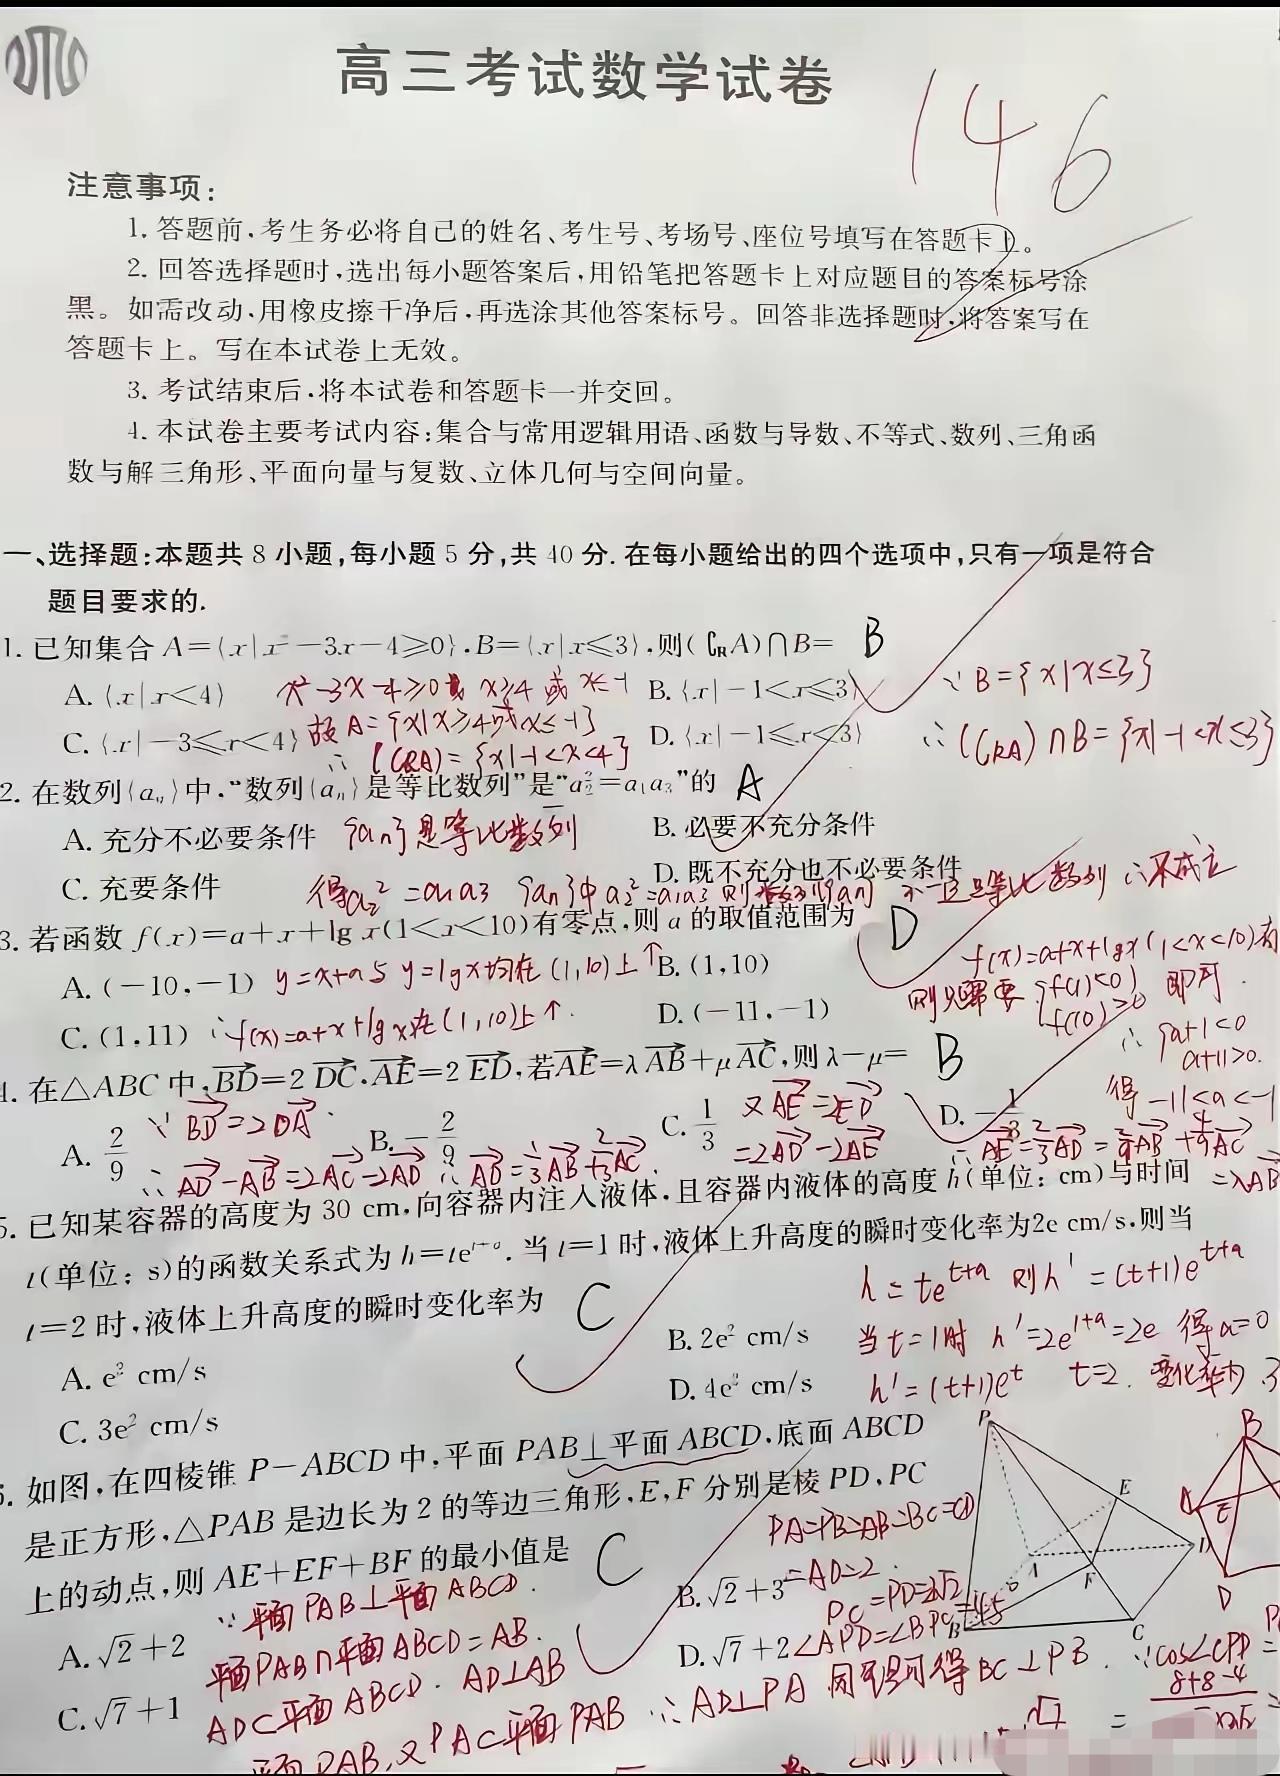 高三考试数学试卷
146
注意事项:
1. 答题前,考生务必将自己的姓名、考生号、考场号、座位号填写在答题卡上。
2. 回答选择题时,选出每小题答案后,用铅笔把答题卡上对应题目的答案标号涂
黑。如需改动,用橡皮擦干净后,再选涂其他答案标号。回答非选择题时,将答案写在
答题卡上。写在本试卷上无效。
3. 考试结束后,将本试卷和答题卡一并交回。
4. 本试卷主要考试内容:集合与常用逻辑用语、函数与导数、不等式、数列、三角函
数与解三角形、平面向量与复数、立体几何与空间向量。
一、选择题:本题共 8 小题,每小题 5 分,共 40 分. 在每小题给出的四个选项中,只有一项是符合
题目要求的.
1. 已知集合 A={x|x²-3x-4≥0},B={x|x≤3},则(∁RA)∩B= B
A. {x|x<4} x²-3x-4≥0 x≥4 或 x≤-1 B. {x|-1<x≤3} ∵B={x|x≤3}
故A={x|x≥4或x≤-1}
C. {x|-3≤x<4} D. {x|-1≤x≤3} ∴(CRA)∩B={x|-1<x≤3}
∴(CRA)={x|-1<x<4}
2. 在数列{aₙ}中,“数列{aₙ}是等比数列”是“a₂²=a₁a₃”的 A
A. 充分不必要条件 {an}是等比数列 B. 必要不充分条件
C. 充要条件 D. 既不充分也不必要条件
得a₂²=a₁a₃ {an}中a₂²=a₁a₃ 则数列{an}不一定是等比数列 ∴不成立
3. 若函数 f(x)=a+x+lg x(1<x<10)有零点,则 a 的取值范围为 D
f(x)=a+x+lgx(1<x<10)有
A. (-10,-1) y=x+a与y=lgx均在(1,10)上↑ B. (1,10)
则只需要 {f(1)<0 f(10)>0 即可.
C. (1,11) ∴f(x)=a+x+lgx在(1,10)上↑. D. (-11,-1)
∴{a+1<0 a+11>0.
得 -11<a<-1
4. 在△ABC 中,BD=2 DC,AE=2 ED,若AE=λ AB+μ AC,则 λ-μ= B
A. 2/9 ∵BD=2DA B. -2/9 C. 1/3 又AE=2ED D. -1/3
∴AD-AB=2AC-2AD ∴AD=1/3AB+2/3AC =2AD-2AE ∴AE=2/3AD=2/9AB+4/9AC
=λAB
5. 已知某容器的高度为 30 cm,向容器内注入液体,且容器内液体的高度 h(单位: cm)与时间
t(单位: s)的函数关系式为 h=te^(t+a). 当 t=1 时,液体上升高度的瞬时变化率为2e cm/s,则当
t=2 时,液体上升高度的瞬时变化率为 C
h=te^(t+a) 则h'=(t+1)e^(t+a)
A. e² cm/s B. 2e² cm/s
当t=1时 h'=2e^(1+a)=2e 得a=0
C. 3e² cm/s D. 4e² cm/s
h'=(t+1)e^t t=2. 变化率为 3
6. 如图,在四棱锥 P-ABCD 中,平面 PAB⊥平面 ABCD,底面 ABCD
是正方形,△PAB 是边长为 2 的等边三角形,E,F 分别是棱 PD,PC
上的动点,则 AE+EF+BF 的最小值是 C
PA=PB=AB=BC=CD
=AD=2.
P E D A F B C
B A E D
A. √2+2 B. √2+3
∵平面PAB⊥平面ABCD.
PC=PD=2√2
C. √7+1 D. √7+2
∠APD=∠BPC=45
平面PAB∩平面ABCD=AB.
AD⊂平面ABCD. AD⊥AB
∴AD⊥PA 同理可得BC⊥PB.
∵cos∠CPD=
8+8-4
平面PAB,又PA⊂平面PAB